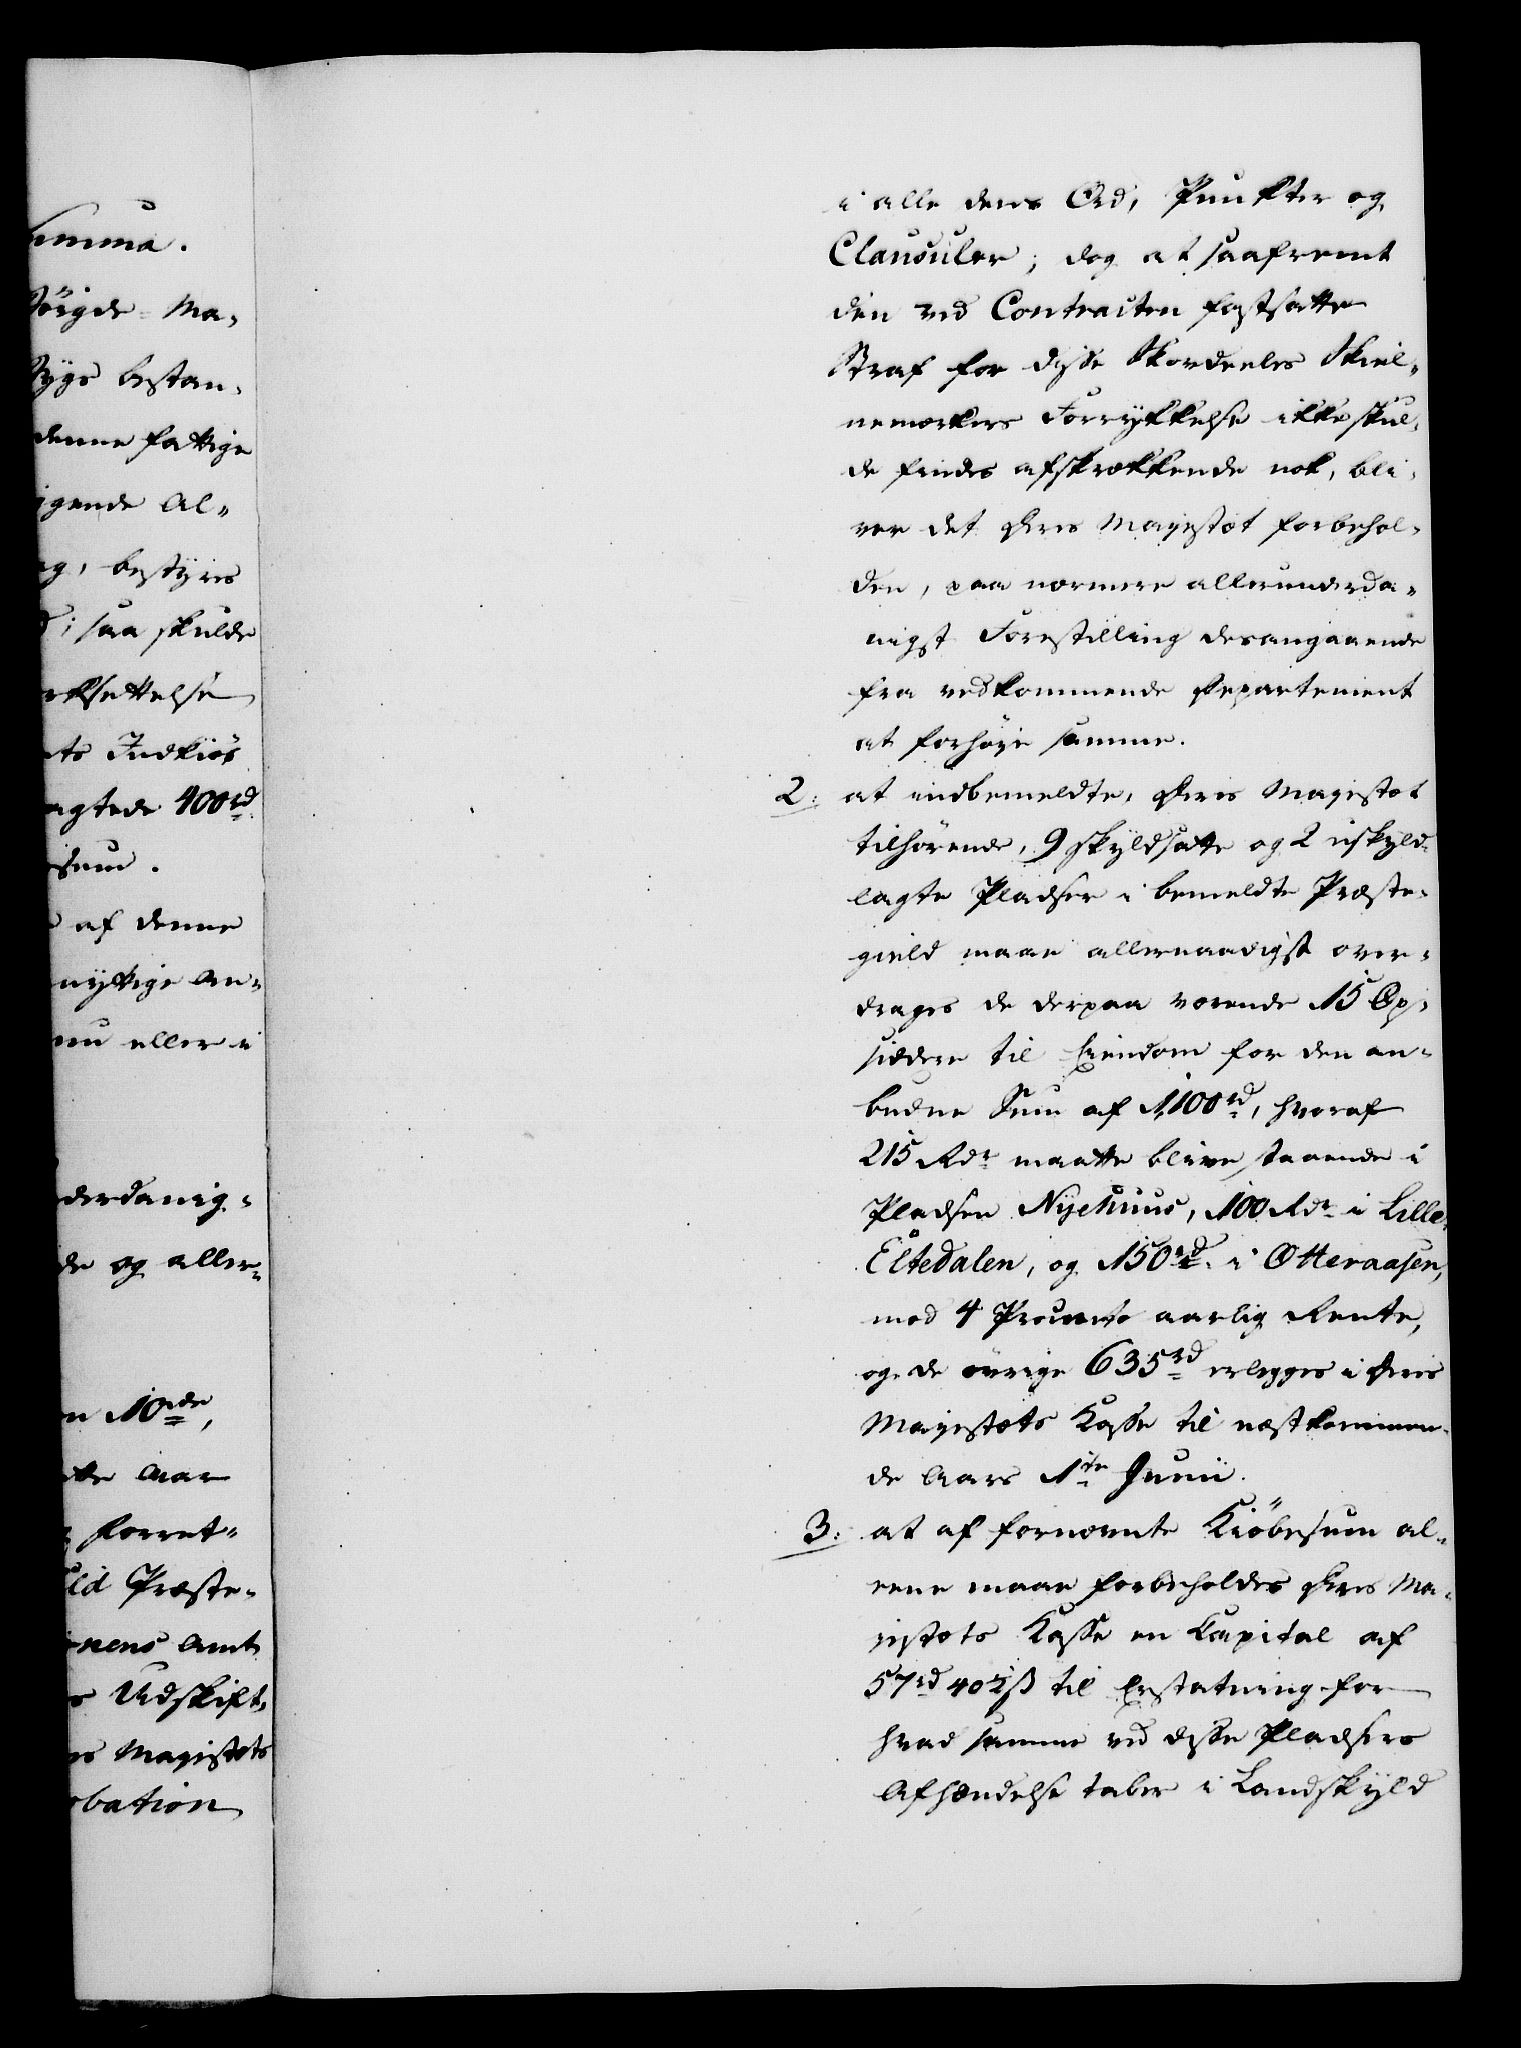 umma.
Sörgde-Ma-
Sygs bestan-
denne fattige
igende Al-
ng, bestyres
d; saa skulde
rksettelse
ts Indkiøb
agtede 400rd
Sum.
af denne
nyttige An-
nu eller i
derdanig-
de og aller-
en 10de,
tte Aar
forret-
ld Præste-
nens Amt
s Udskift-
es Majestæts
obation
i alle dens Ord, Punkter og
Clausuler; dog at saafremt
den ved Contracten fastsatte
Straf for disse Skovdeeles Skiel-
nemærkers Forrykkelse ikke skul-
de findes afskrækkende nok, bli-
ver det Deres Majestæt forbehol-
den, paa nærmere allerunderda-
nigst Forestilling desangaaende
fra vedkommende Departement
at forhøje samme.
2: at indbemeldte, Deres Majestæt
tilhørende, 9 skyldsatte og 2 uskyld-
lagte Pladser i bemeldte Præste-
gield maae allernaadigst over-
drages de derpaa værende 15 Op-
siddere til Eiendom for den an-
budne Sum af 1100rd, hvoraf
215 Rdr maatte blive staaende i
Pladsen Nyehuus, 100 Rdr i Lille-
Eltedalen, og 150rd i Otteraasen,
mod 4 Procento aarlig Rente,
og de øvrige 635rd erlegges i Deres
Majestæts Kasse til næstkommen-
de Aars 1te Junii.
3: at af fornævnte Kiöbesum al-
eene maae forbeholdes Deres Ma-
jestæts Kasse en Kapital af
57rd 40½ß til Erstatning for
hvad samme ved disse Pladsers
Afhændelse taber i Landskyld